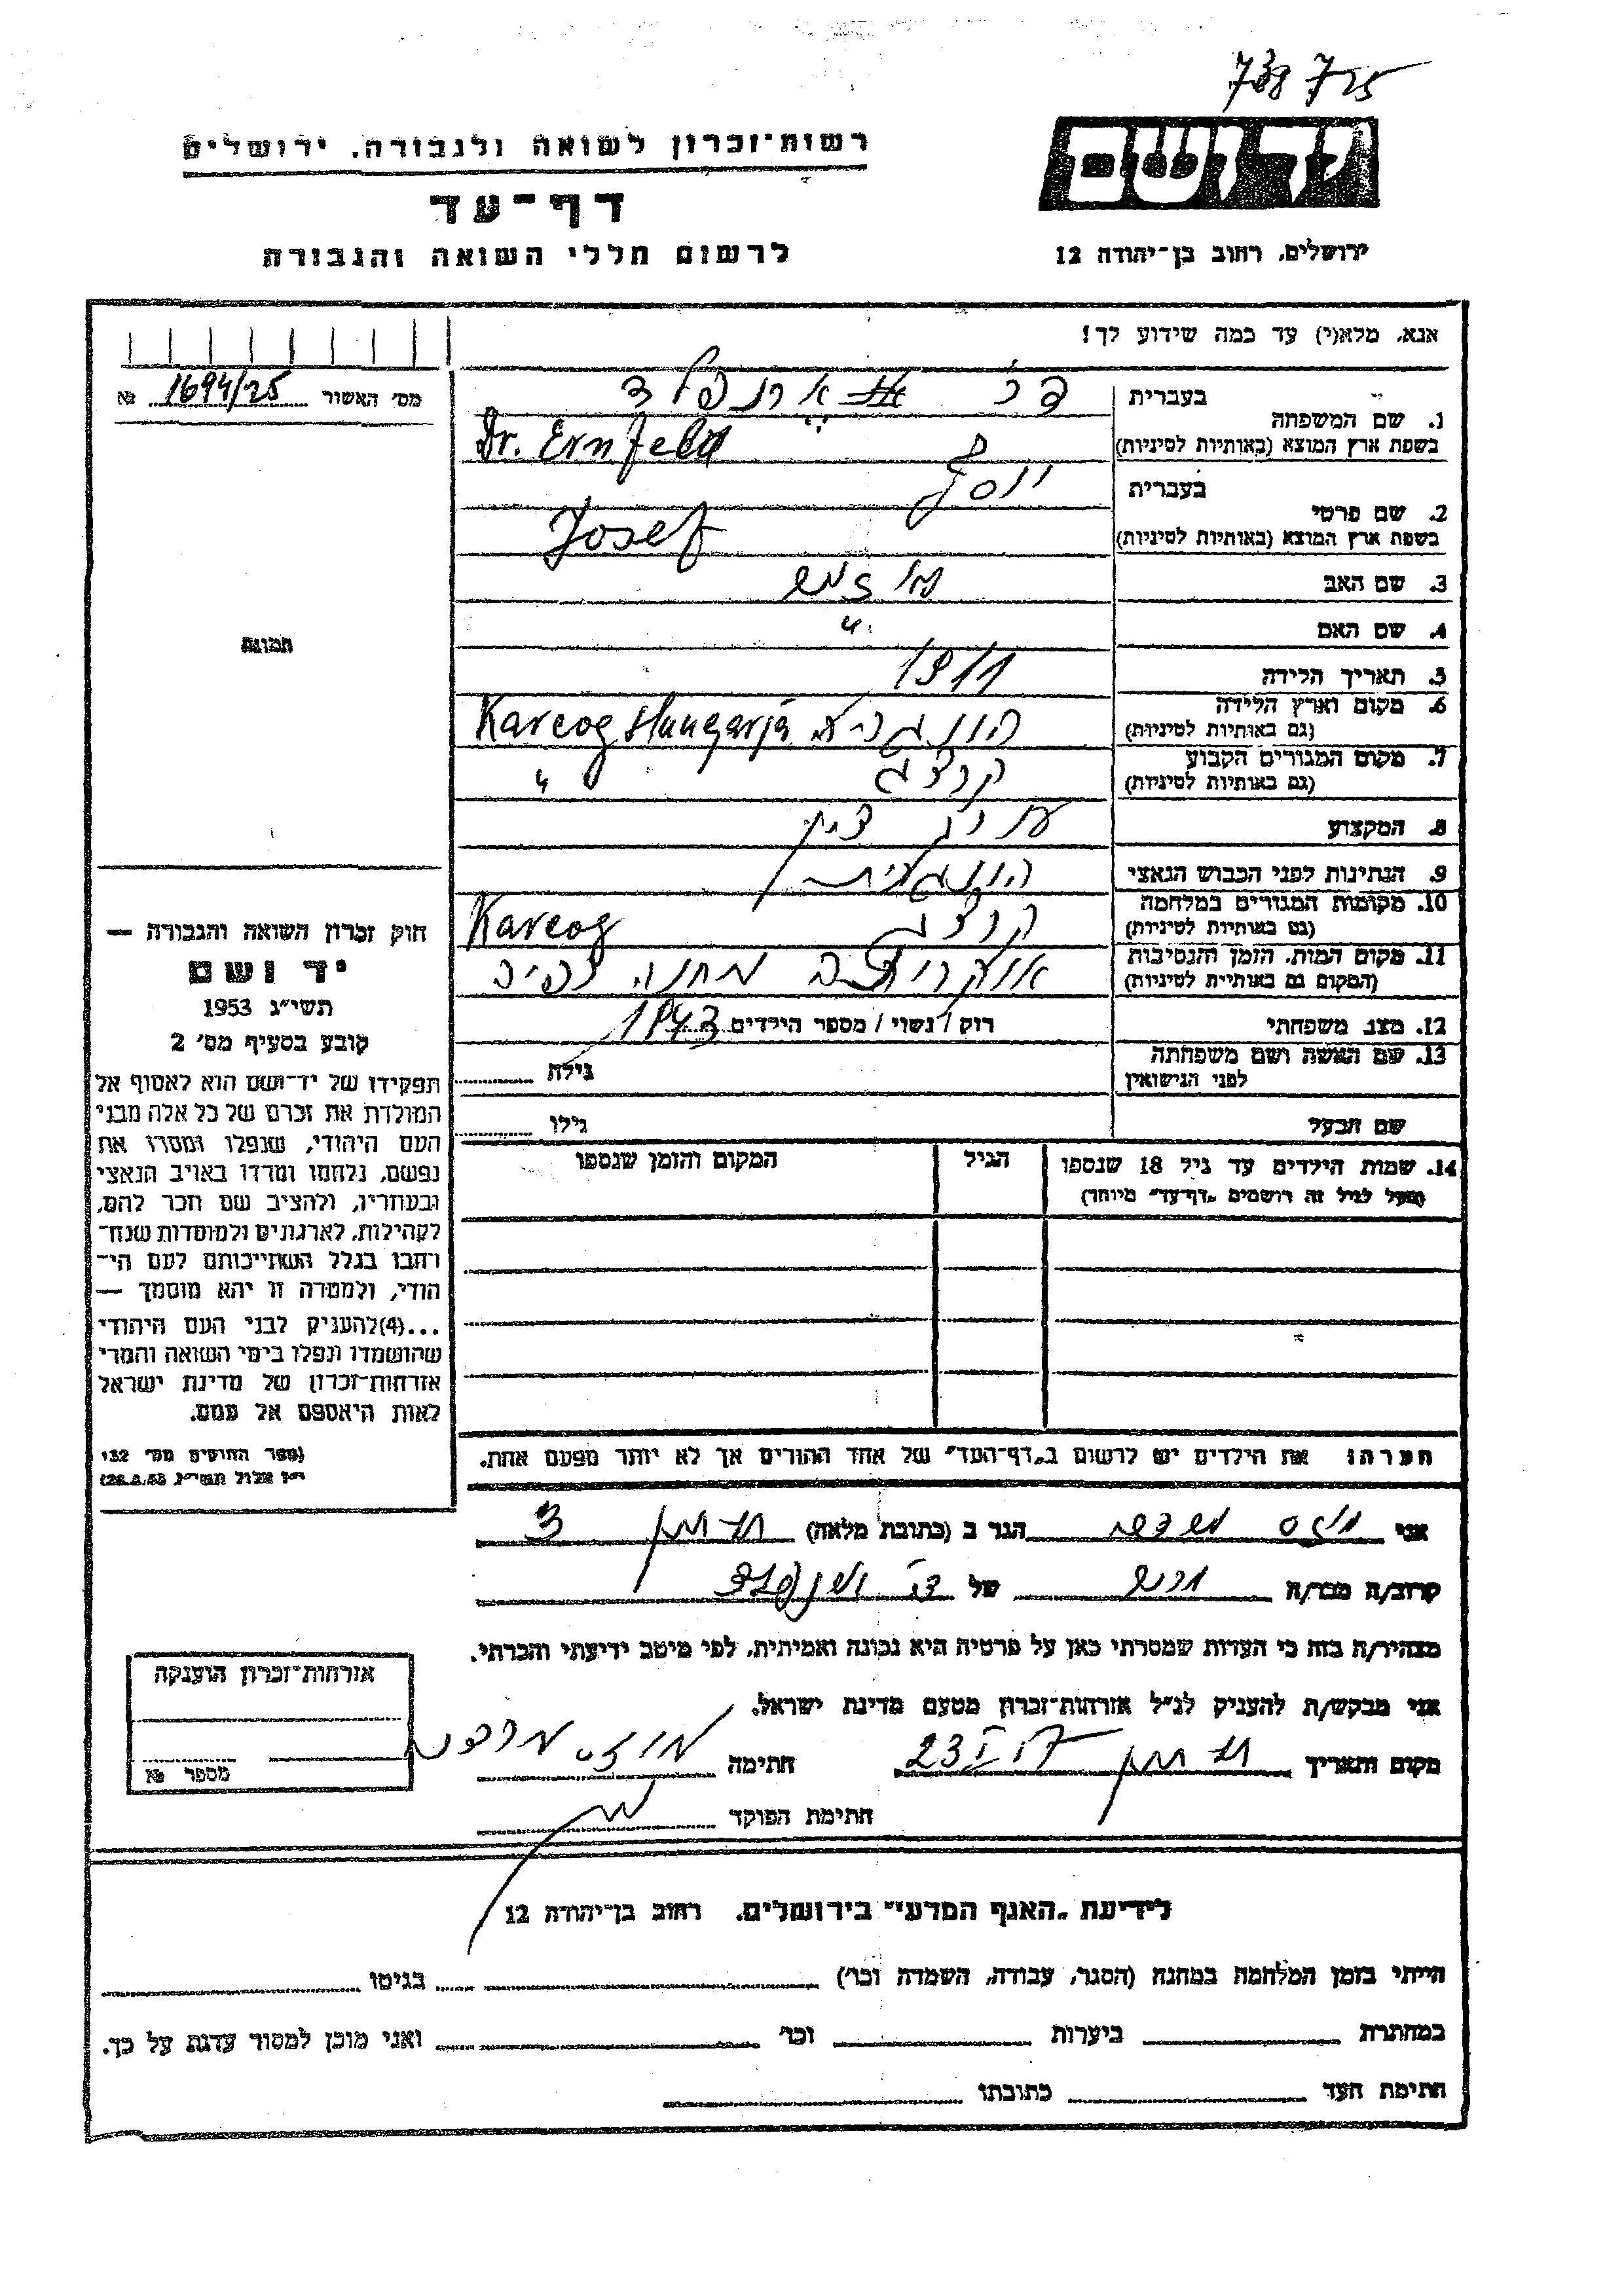 738725
רשות־זכרון לשואה ולגבורה, ירושלים
דף־עד
לרשום חללי השואה והגבורה
יד ושם
ירושלים, רחוב בן־יהודה 12
אנא, מלא(י) עד כמה שידוע לך!
מס׳ האשור 1694/25 №
1. שם המשפחה
בעברית ארנפלד
בשפת ארץ המוצא (באותיות לטיניות) Dr. Ernfeld
2. שם פרטי
בעברית יוסף
בשפת ארץ המוצא (באותיות לטיניות) Josef
3. שם האב
4. שם האם
5. תאריך הלידה 1911
6. מקום וארץ הלידה
(גם באותיות לטיניות) הונגריה Karcog Hungarja
7. מקום המגורים הקבוע
(גם באותיות לטיניות) קרצג "
8. המקצוע עורך דין
9. הנתינות לפני הכבוש הנאצי הונגרית
10. מקומות המגורים במלחמה
(גם באותיות לטיניות) קרצג Karcog
11. מקום המות, הזמן והנסיבות
(המקום גם באותיות לטיניות) אוקריינה מחנה
12. מצב משפחתי רוק / נשוי / מספר הילדים 1943
13. שם האשה ושם משפחתה
לפני הנישואין
גילה
שם הבעל גילו
14. שמות הילדים עד גיל 18 שנספו
(מעל לגיל זה רושמים „דף־עד" מיוחד)
הגיל
המקום והזמן שנספו
הערה: את הילדים יש לרשום ב„דף־העד" של אחד ההורים אך לא יותר מפעם אחת.
תמונה
חוק זכרון השואה והגבורה —
יד ושם
תשי״ג 1953
קובע בסעיף מס׳ 2
תפקידו של יד־ושם הוא לאסוף אל
המולדת את זכרם של כל אלה מבני
העם היהודי, שנפלו ומסרו את
נפשם, נלחמו ומרדו באויב הנאצי
ובעוזריו, ולהציב שם וזכר להם,
לקהילות, לארגונים ולמוסדות שנח־
רבו בגלל השתייכותם לעם הי־
הודי, ולמטרה זו יהא מוסמך —
...(4)להעניק לבני העם היהודי
שהושמדו ונפלו בימי השואה והמרי
אזרחות־זכרון של מדינת ישראל
לאות היאספם אל עמם.
(ספר החוקים מס׳ 132
י״ז אלול תשי״ג, 28.8.53)
אני הגר ב (כתובת מלאה) 3
קרוב/ה מכר/ה של
מצהיר/ה בזה כי העדות שמסרתי כאן על פרטיה היא נכונה ואמיתית, לפי מיטב ידיעתי והכרתי.
אני מבקש/ת להעניק לנ״ל אזרחות־זכרון מטעם מדינת ישראל.
מקום ותאריך 23 חתימה
חתימת הפוקד
אזרחות־זכרון הוענקה
מספר №
לידיעת „האגף המדעי" בירושלים, רחוב בן־יהודה 12
הייתי בזמן המלחמה במחנה (הסגר, עבודה, השמדה וכו׳) בגיטו
במחתרת ביערות וכו׳ ואני מוכן למסור עדות על כך.
חתימת העד כתובתו